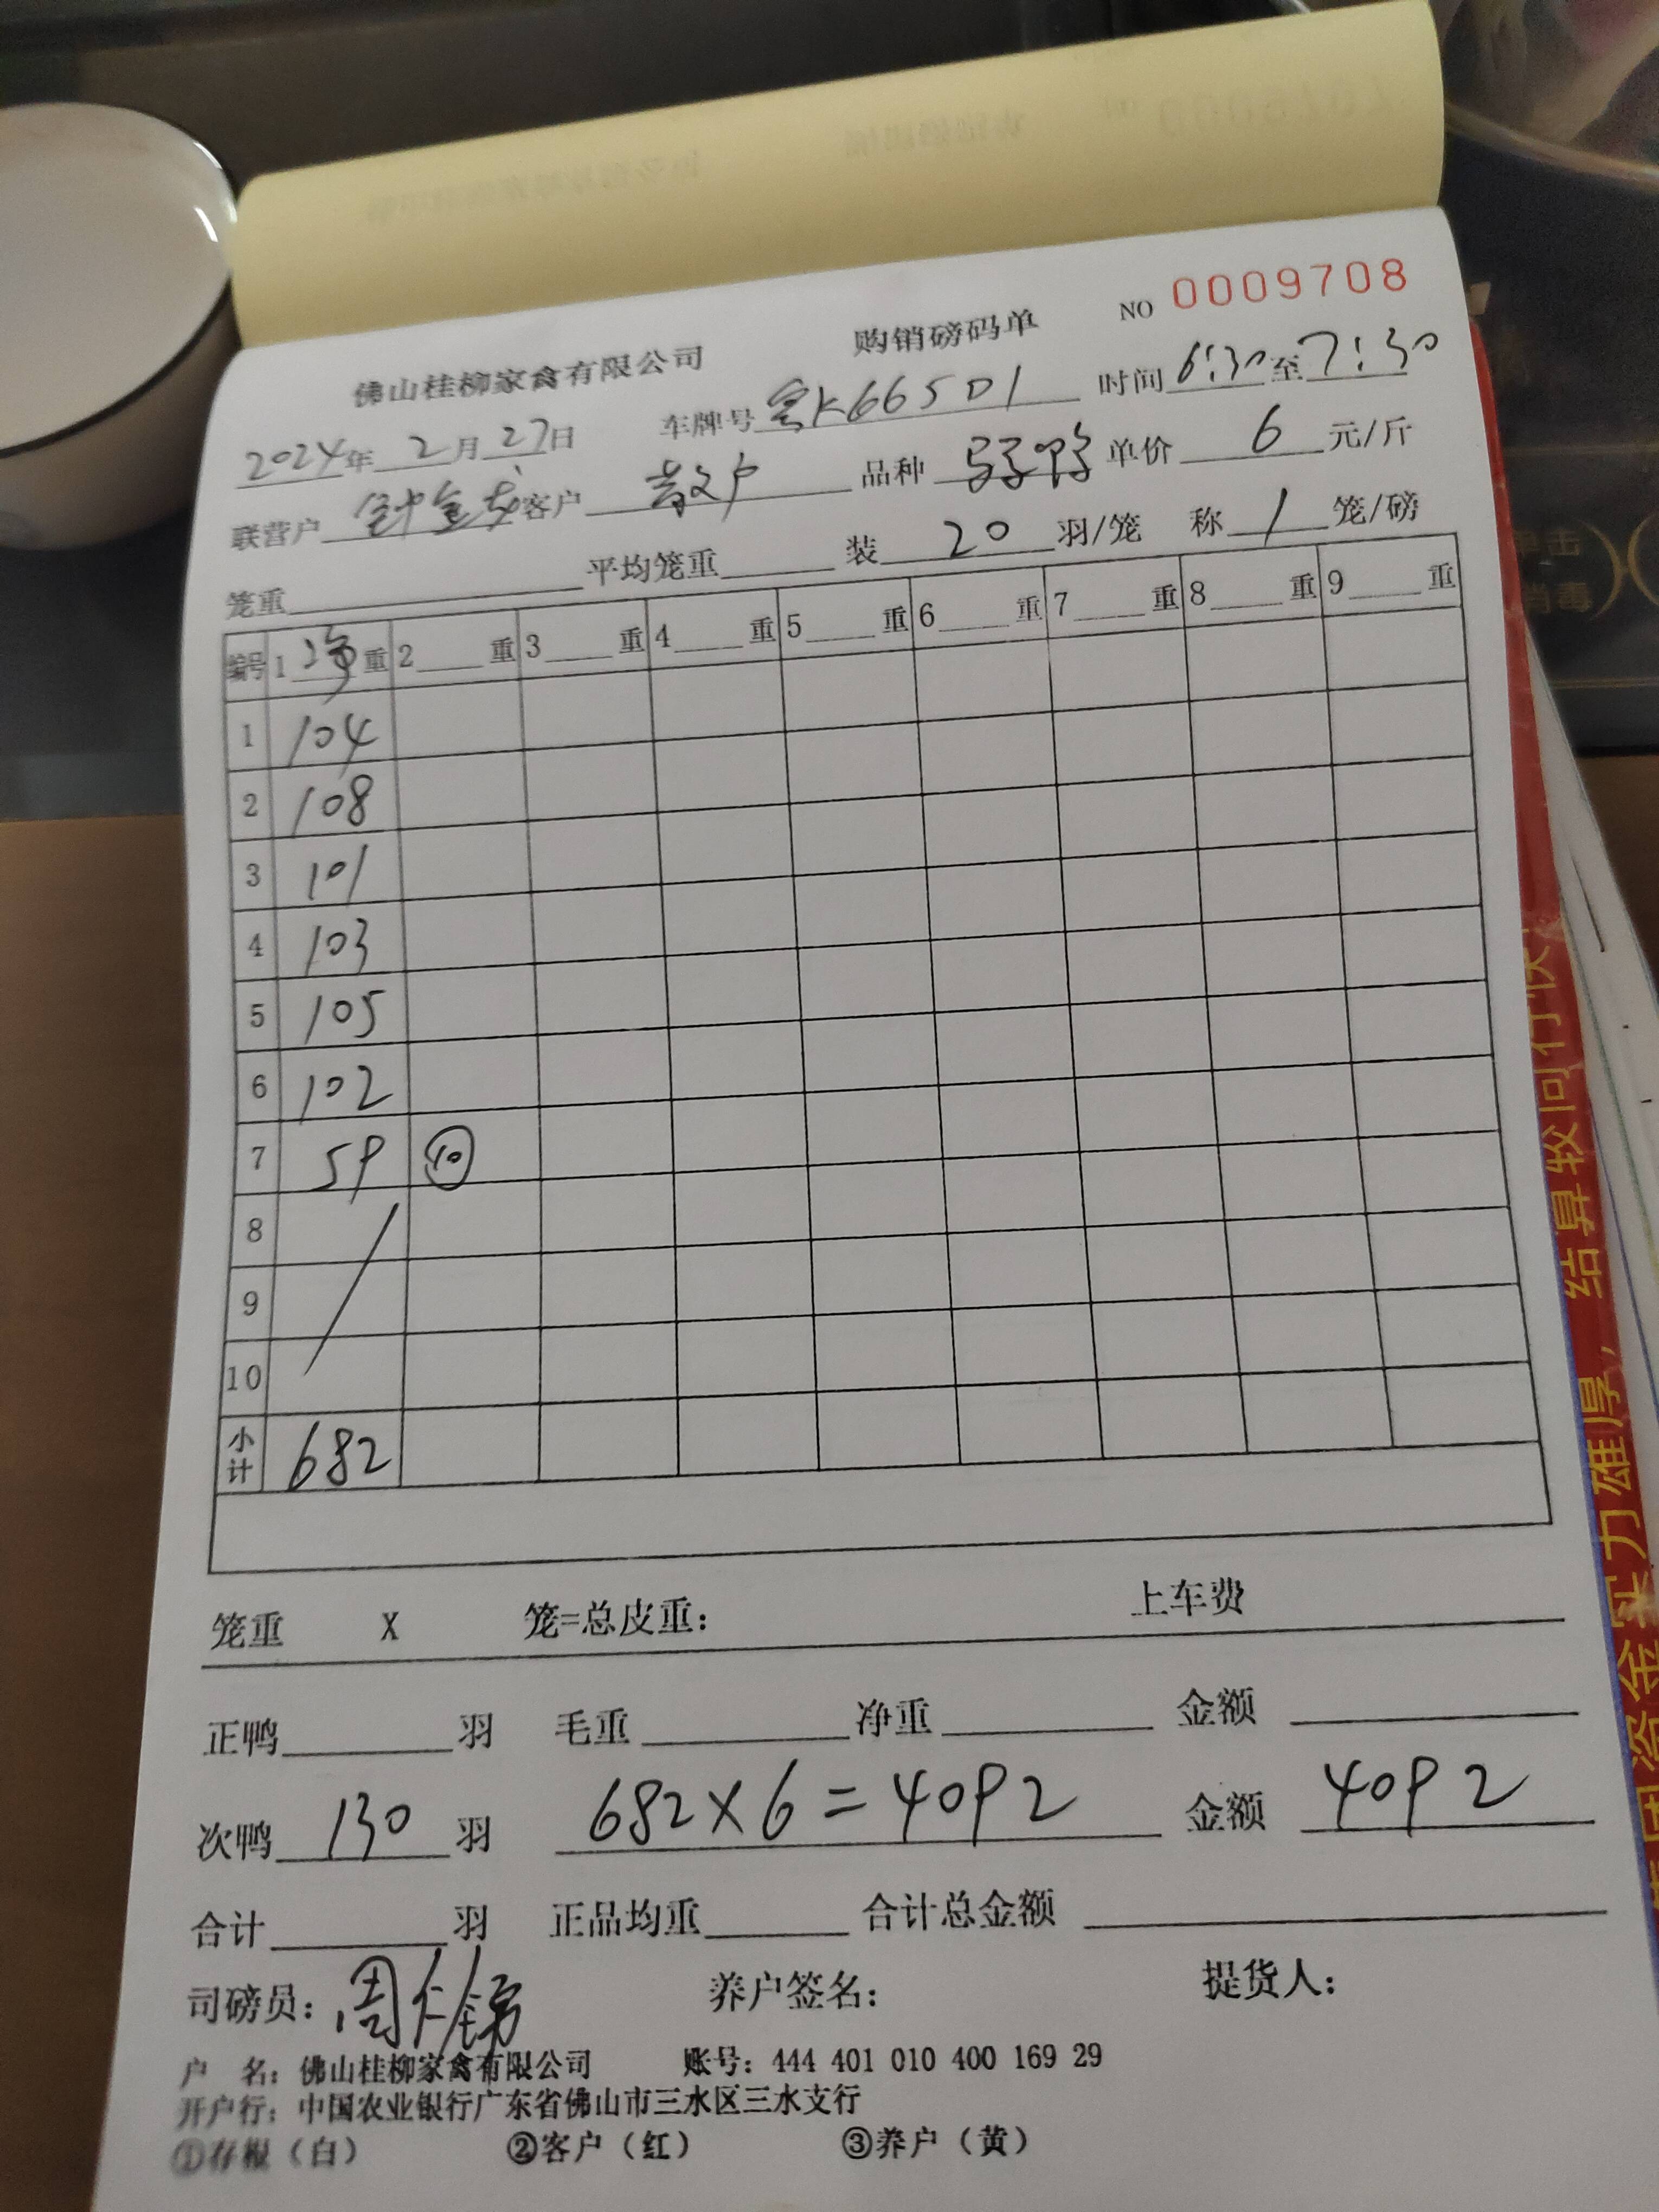 佛山桂柳家禽有限公司 购销磅码单 NO 0009708
2024年2月27日 车牌号 K66501 时间 6:30 至 7:30
联营户 钟金龙 客户 散户 品种 单价 6 元/斤
笼重 平均笼重 装 20 羽/笼 称 1 笼/磅
编号 1 净 重 2 重 3 重 4 重 5 重 6 重 7 重 8 重 9 重
1 104
2 108
3 101
4 103
5 105
6 102
7 59 ⑩
8
9
10
小计 682
笼重 X 笼=总皮重： 上车费
正鸭 羽 毛重 净重 金额
次鸭 130 羽 682×6=4092 金额 4092
合计 羽 正品均重 合计总金额
司磅员： 周 养户签名： 提货人：
户 名：佛山桂柳家禽有限公司 账号：444 401 010 400 169 29
开户行：中国农业银行广东省佛山市三水区三水支行
①存根（白） ②客户（红） ③养户（黄）
单击
消毒
结算较同行快
力雄厚，